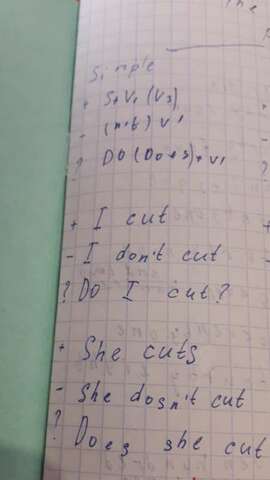 The
Simple
+ S+V1 (Vs)
- (n't) V1
? DO (Does)+V1
+ I cut
- I don't cut
? Do I cut?
+ She cuts
- She dosn't cut
? Does she cut